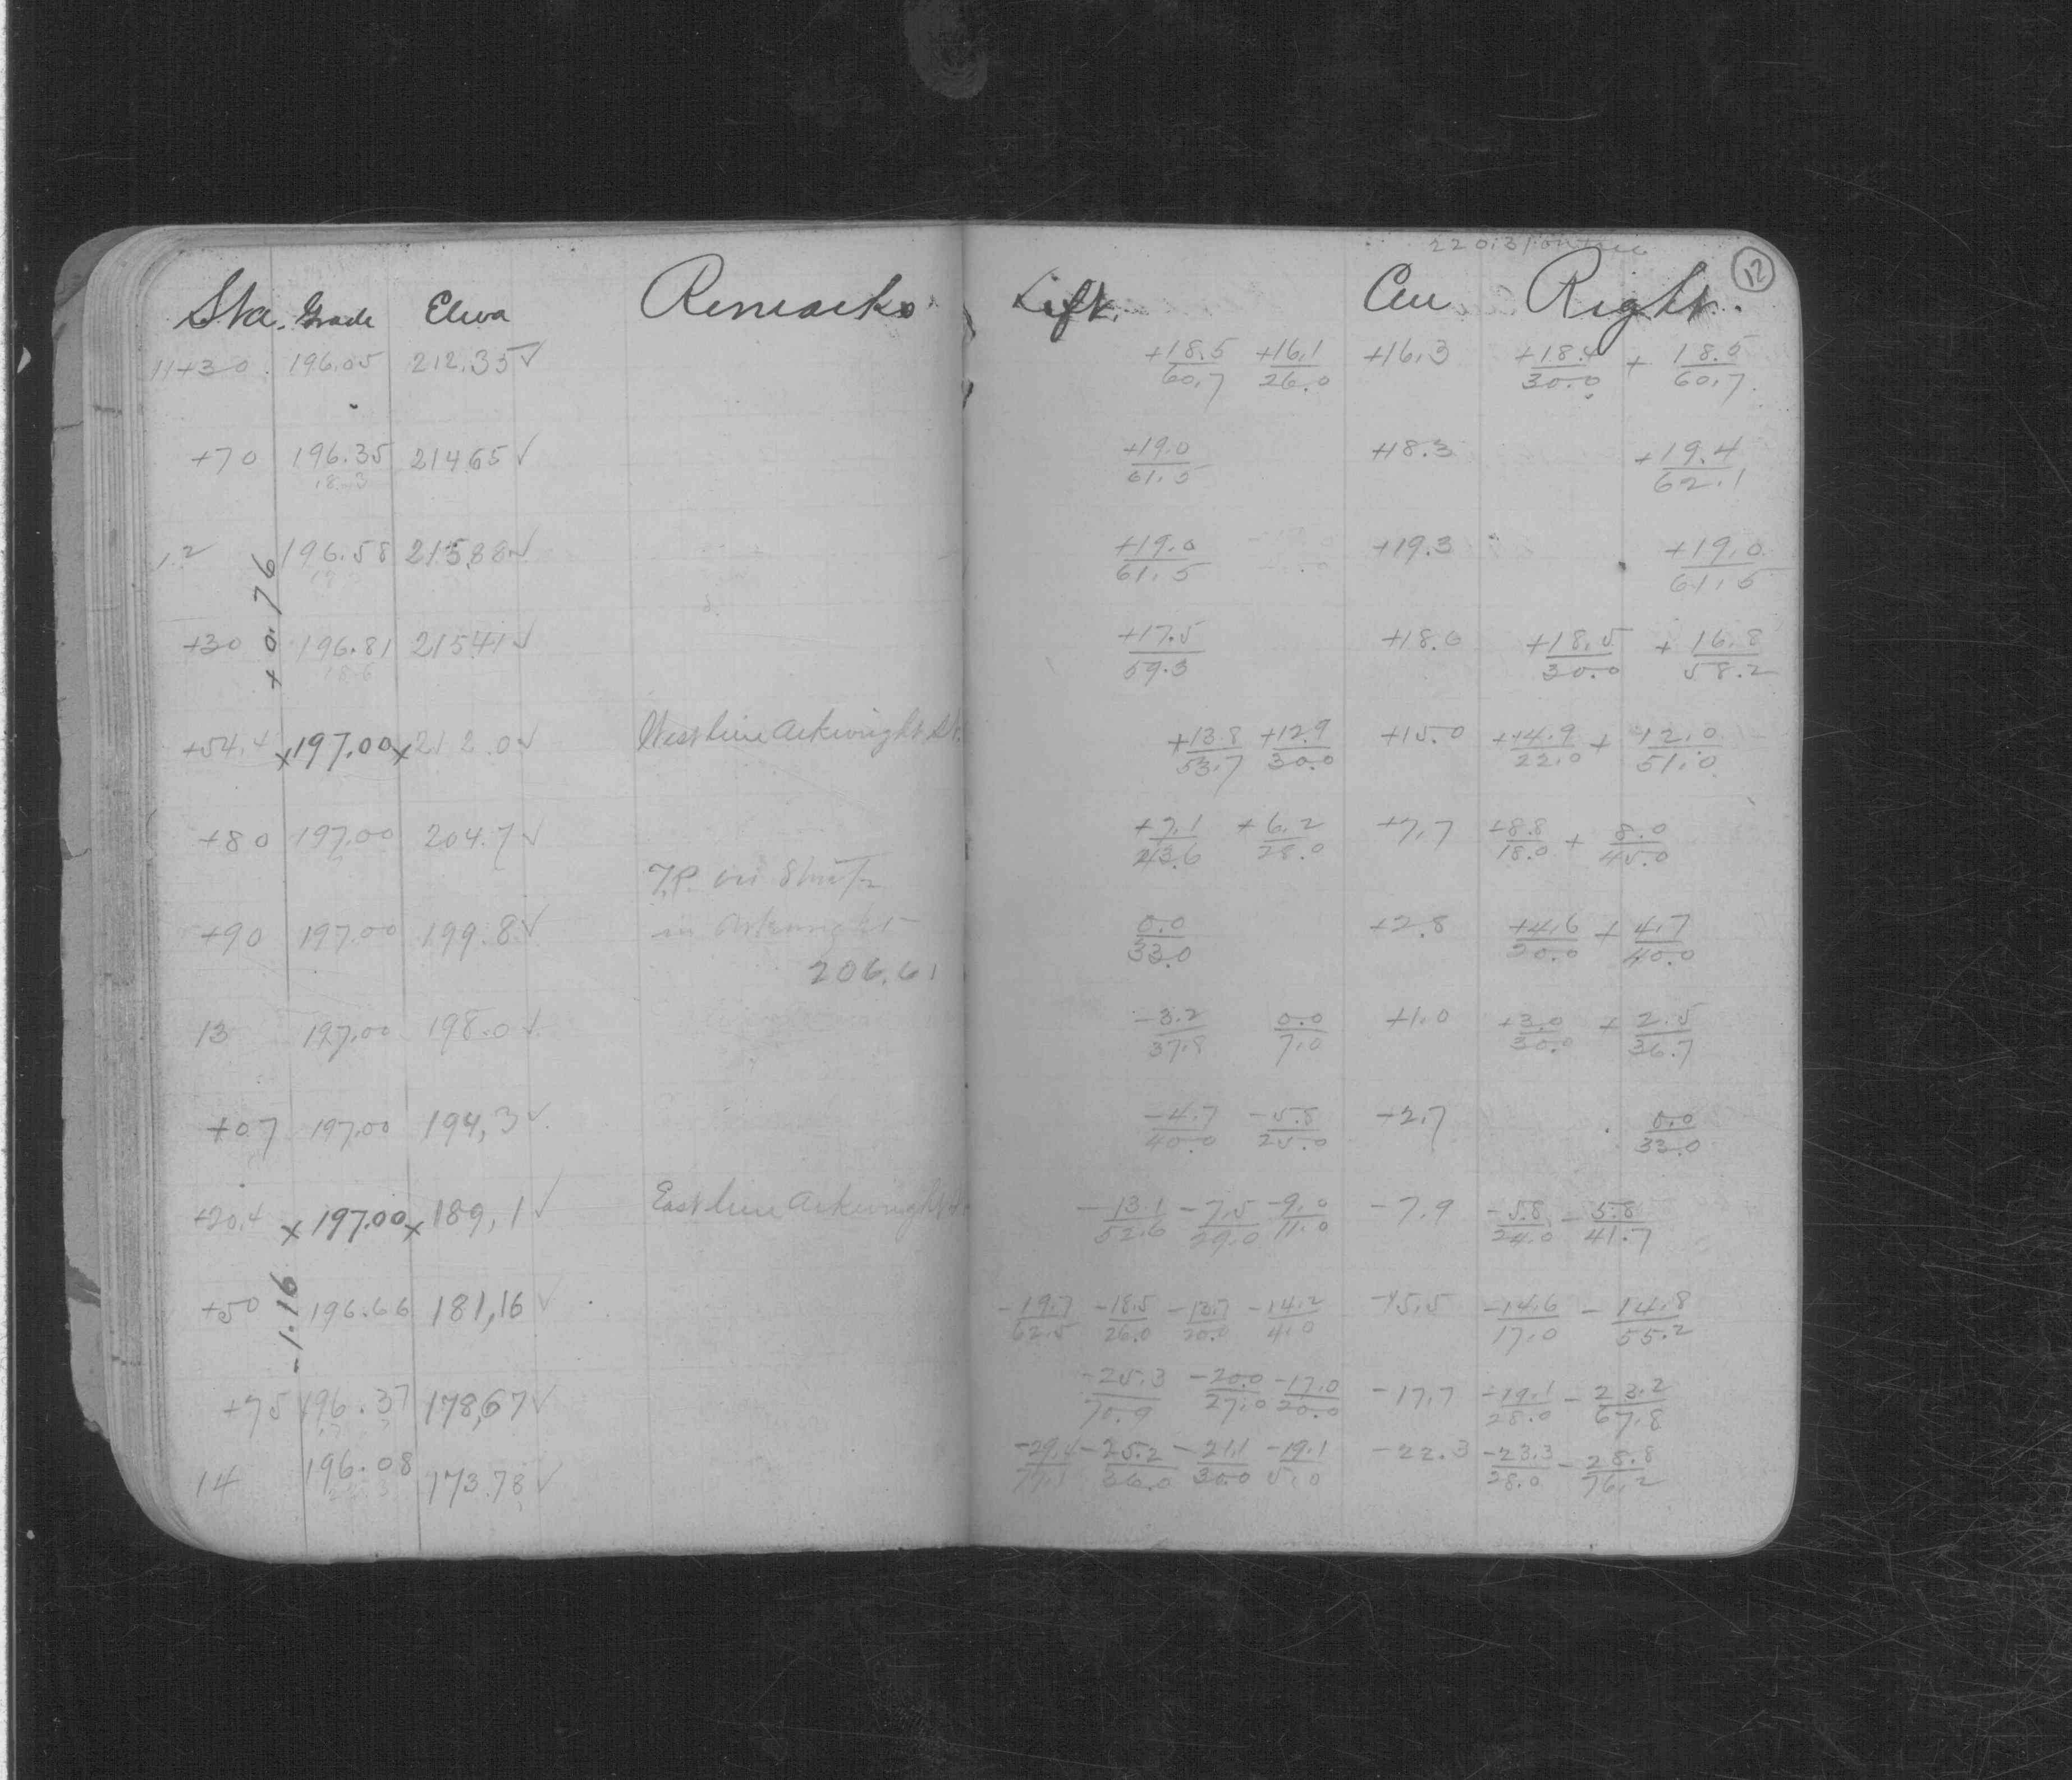 12
Sta. Grade Eleva Remarks Left. Cen Right.
11+30 196.05 212.35 ✓ +18.5/60.7 +16.1/26.0 +16.3 +18.4/30.0 + 18.5/60.7
+70 196.35 214.65 ✓ +19.0/61.5 +18.3 +19.4/62.1
18.3
12 196.58 215.88 ✓ +19.0/61.5 +19.3 +19.0/61.5
+0.76
+30 196.81 215.41 ✓ +17.5/59.3 +18.6 +18.5/30.0 + 16.8/58.2
18.6
+54.4 x 197.00 x 212.0 ✓ West line Arkwright St. +13.8/53.7 +12.9/30.0 +15.0 +14.9/22.0 + 12.0/51.0
+80 197.00 204.7 ✓ +7.1/43.6 +6.2/28.0 +7.7 +8.8/18.0 + 8.0/45.0
T.P. on
+90 197.00 199.8 ✓ in Arkwright 0.0/33.0 +2.8 +4.6/20.0 + 4.7/40.0
206.61
13 197.00 198.0 ✓ -3.2/37.8 0.0/7.0 +1.0 +3.0/30.0 + 2.5/36.7
+07 197.00 194.3 ✓ -4.7/40.0 -5.8/25.0 -2.7 0.0/33.0
+20.4 x 197.00 x 189.1 ✓ East line Arkwright -13.1/52.6 -7.5/29.0 -9.0/11.0 -7.9 -5.8/24.0 - 5.8/41.7
-1.16
+50 196.66 181.16 ✓ -19.7/62.5 -18.5/26.0 -13.7/20.0 -14.2/4.0 -15.5 -14.6/17.0 - 14.8/55.2
+75 196.37 178.67 ✓ -25.3/70.9 -20.0/27.0 -17.0/20.0 -17.7 -19.1/28.0 - 23.2/67.8
14 196.08 173.78 ✓ -29.4/77.1 -25.2/36.0 -21.1/30.0 -19.1/5.0 -22.3 -23.3/28.0 - 28.8/76.2